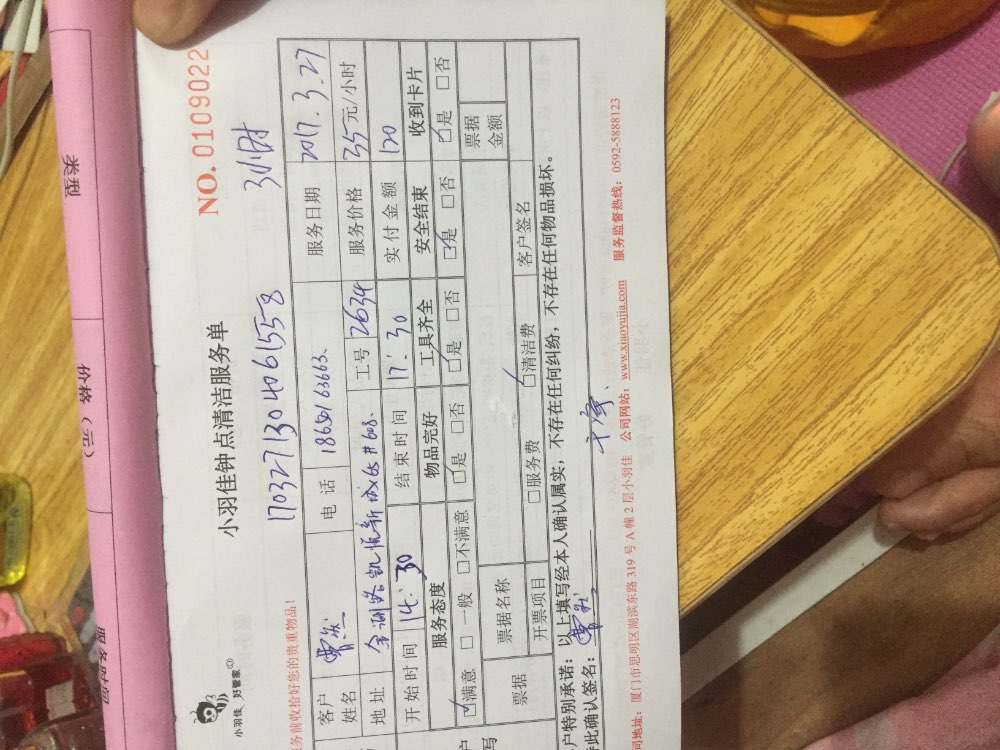 小羽佳 好管家
小羽佳钟点清洁服务单
NO. 0109022
1703271304061558 3小时
务前收拾好您的贵重物品!
客户姓名 电话 服务日期 2017.3.27
地址 工号 2634 服务价格 35元/小时
开始时间 14:30 结束时间 17:30 实付金额 120
服务态度 物品完好 工具齐全 安全结束 收到卡片
☑满意 □一般 □不满意 ☑是 □否 ☑是 □否 ☑是 □否 ☑是 □否
票据 票据名称 票据金额
开票项目 □服务费 ☑清洁费 客户签名
户特别承诺:以上填写经本人确认属实,不存在任何纠纷,不存在任何物品损坏。
特此确认签名:
司地址:厦门市思明区湖滨东路 319 号 A 幢 2 层小羽佳 公司网站:www.xiaoyujia.com 服务监督热线:0592-5888123
类型
价格(元)